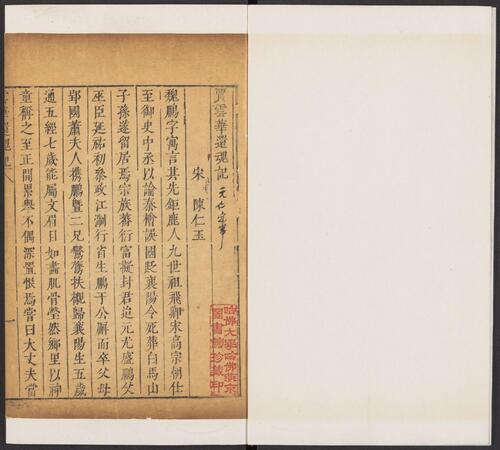 賈雲華還魂記 元仁宗事
宋 陳仁玉
魏鵬字寓言其先鉅鹿人九世祖飛卿宋高宗朝仕
至御史中丞以論秦檜誤國貶襄陽令死葬白馬山
子孫遂留居焉宗族蕃衍富擬封君迨元尤盛鵬父
巫臣延祐初參政江淛行省生鵬于公廨而卒父母
郢國蕭夫人携鵬暨二兄鷟鷟扶櫬歸襄陽生五歲
通五經七歲能屬文眉目如畫肌骨瑩然鄉里以神
童稱之至正間累舉不偶深置恨焉嘗曰大丈夫當
哈佛大學哈佛燕京
圖書館珍藏印